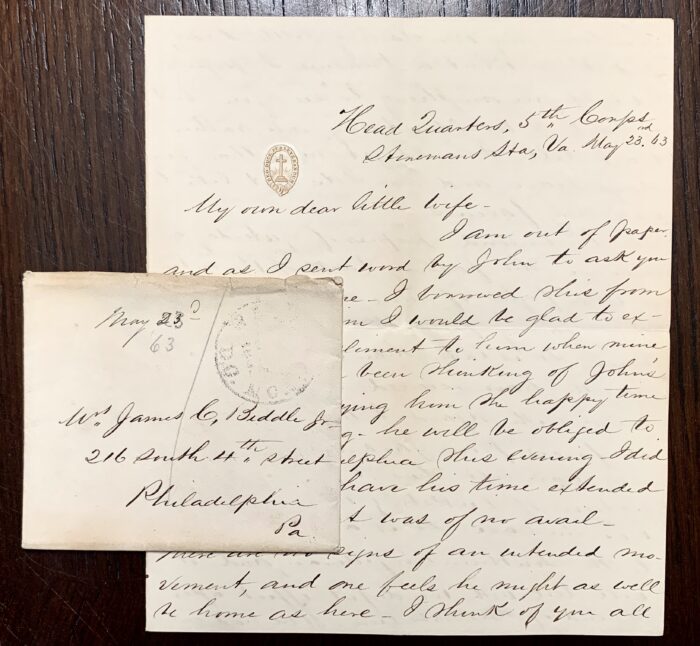 Head Quarters, 5th Corps
Stonemans Sta, Va. May 23rd. 63
My own dear little wife -
I am out of paper.
and as I sent word by John to ask you
I borrowed this from
I would be glad to ex-
to him when mine
been thinking of John's
him the happy time
he will be obliged to
this evening - I did
have his time extended
t was of no avail -
There are no signs of an intended mo-
vement, and one feels he might as well
be home as here - I think of you all
May 23d
63
D.C.
Mrs James C. Biddle Jr
216 South 4th Street
Philadelphia
Pa